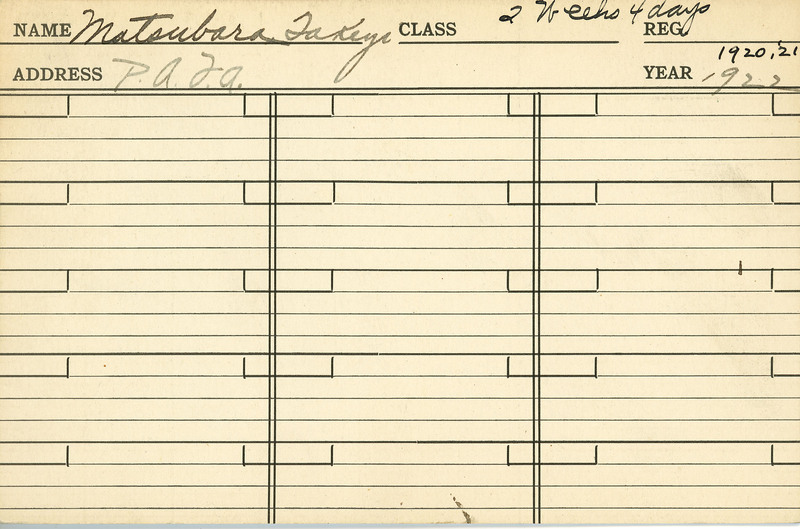 NAME Matsubara Takeyo CLASS 2 Weeks 4 days REG.
ADDRESS P.A.F.A. YEAR 1920, 21
1922